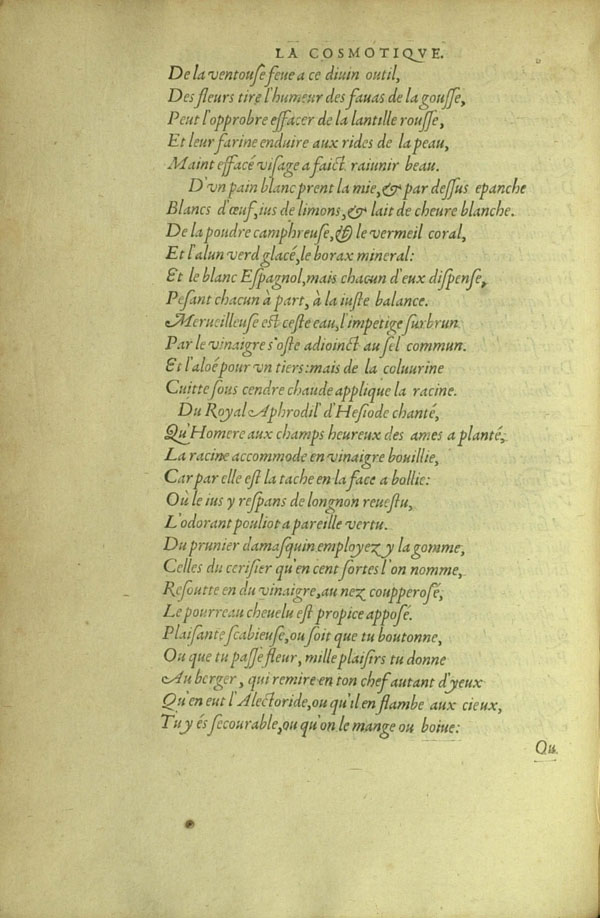 LA COSMOTIQVE.
De la ventouse feue a ce diuin outil,
Des fleurs tire l'humeur des fauas de la gousse,
Peut l'opprobre effacer de la lantille rousse,
Et leur farine enduire aux rides de la peau,
Maint effacé visage a faict raiunir beau.
D'vn pain blanc prent la mie, & par dessus epanche
Blancs d'œuf, ius de limons, & lait de cheure blanche.
De la poudre camphreuse, & le vermeil coral,
Et l'alun verd glacé, le borax mineral:
Et le blanc Espagnol, mais chacun d'eux dispense,
Pesant chacun à part, à la iuste balance.
Merueilleuse est ceste eau, l'impetige surbrun
Par le vinaigre s'oste adioinct au sel commun.
Et l'aloé pour vn tiers: mais de la coluurine
Cuitte sous cendre chaude applique la racine.
Du Royal Aphrodil' d'Hesiode chanté,
Qu'Homere aux champs heureux des ames a planté,
La racine accommode en vinaigre bouillie,
Car par elle est la tache en la face a bollie:
Où le ius y respans de longnon reuestu,
L'odorant pouliot a pareille vertu.
Du prunier damasquin employez y la gomme,
Celles du cerisier qu'en cent sortes l'on nomme,
Resoutte en du vinaigre, au nez coupperosé,
Le pourreau cheuelu est propice apposé.
Plaisante scabieuse, ou soit que tu boutonne,
Ou que tu passe fleur, mille plaisirs tu donne
Au berger, qui remire en ton chef autant d'yeux
Qu'en eut l'Alectoride, ou qu'il en flambe aux cieux,
Tu y és secourable, ou qu'on le mange ou boiue:
Qu.